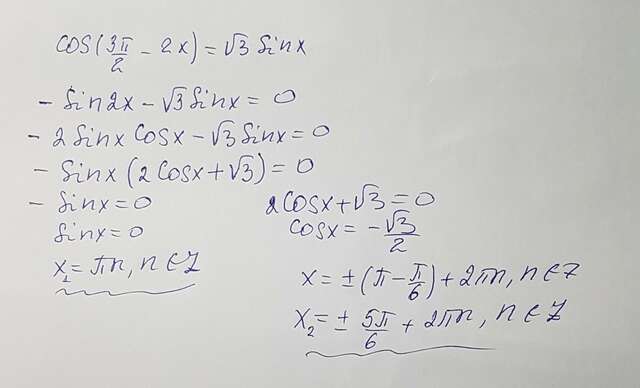 cos(3π/2 - 2x) = √3 sinx
- sin2x - √3 sinx = 0
- 2 sinx cosx - √3 sinx = 0
- sinx (2cosx + √3) = 0
- sinx = 0
sinx = 0
x₁ = πn, n ∈ Z
2cosx + √3 = 0
cosx = - √3/2
x = ± (π - π/6) + 2πn, n ∈ Z
x₂ = ± 5π/6 + 2πn, n ∈ Z